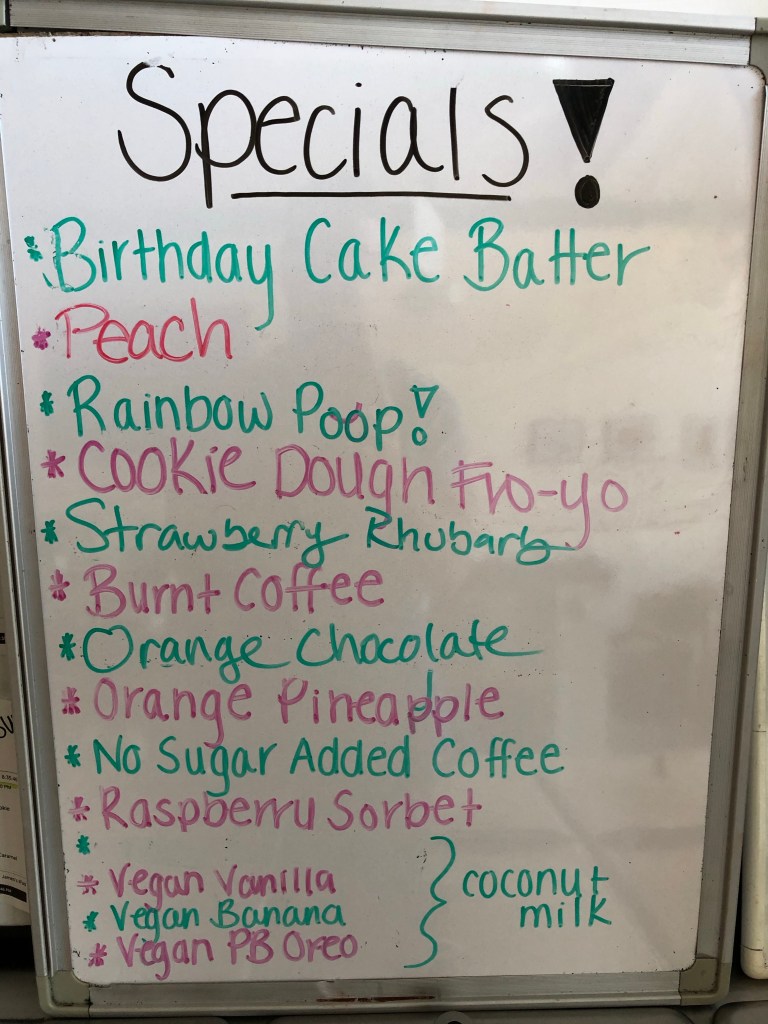 Specials!
* Birthday Cake Batter
* Peach
* Rainbow Poop!
* Cookie Dough Fro-yo
* Strawberry Rhubarb
* Burnt Coffee
* Orange Chocolate
* Orange Pineapple
* No Sugar Added Coffee
* Raspberry Sorbet
*
* Vegan Vanilla
* Vegan Banana
* Vegan PB Oreo
} coconut
milk